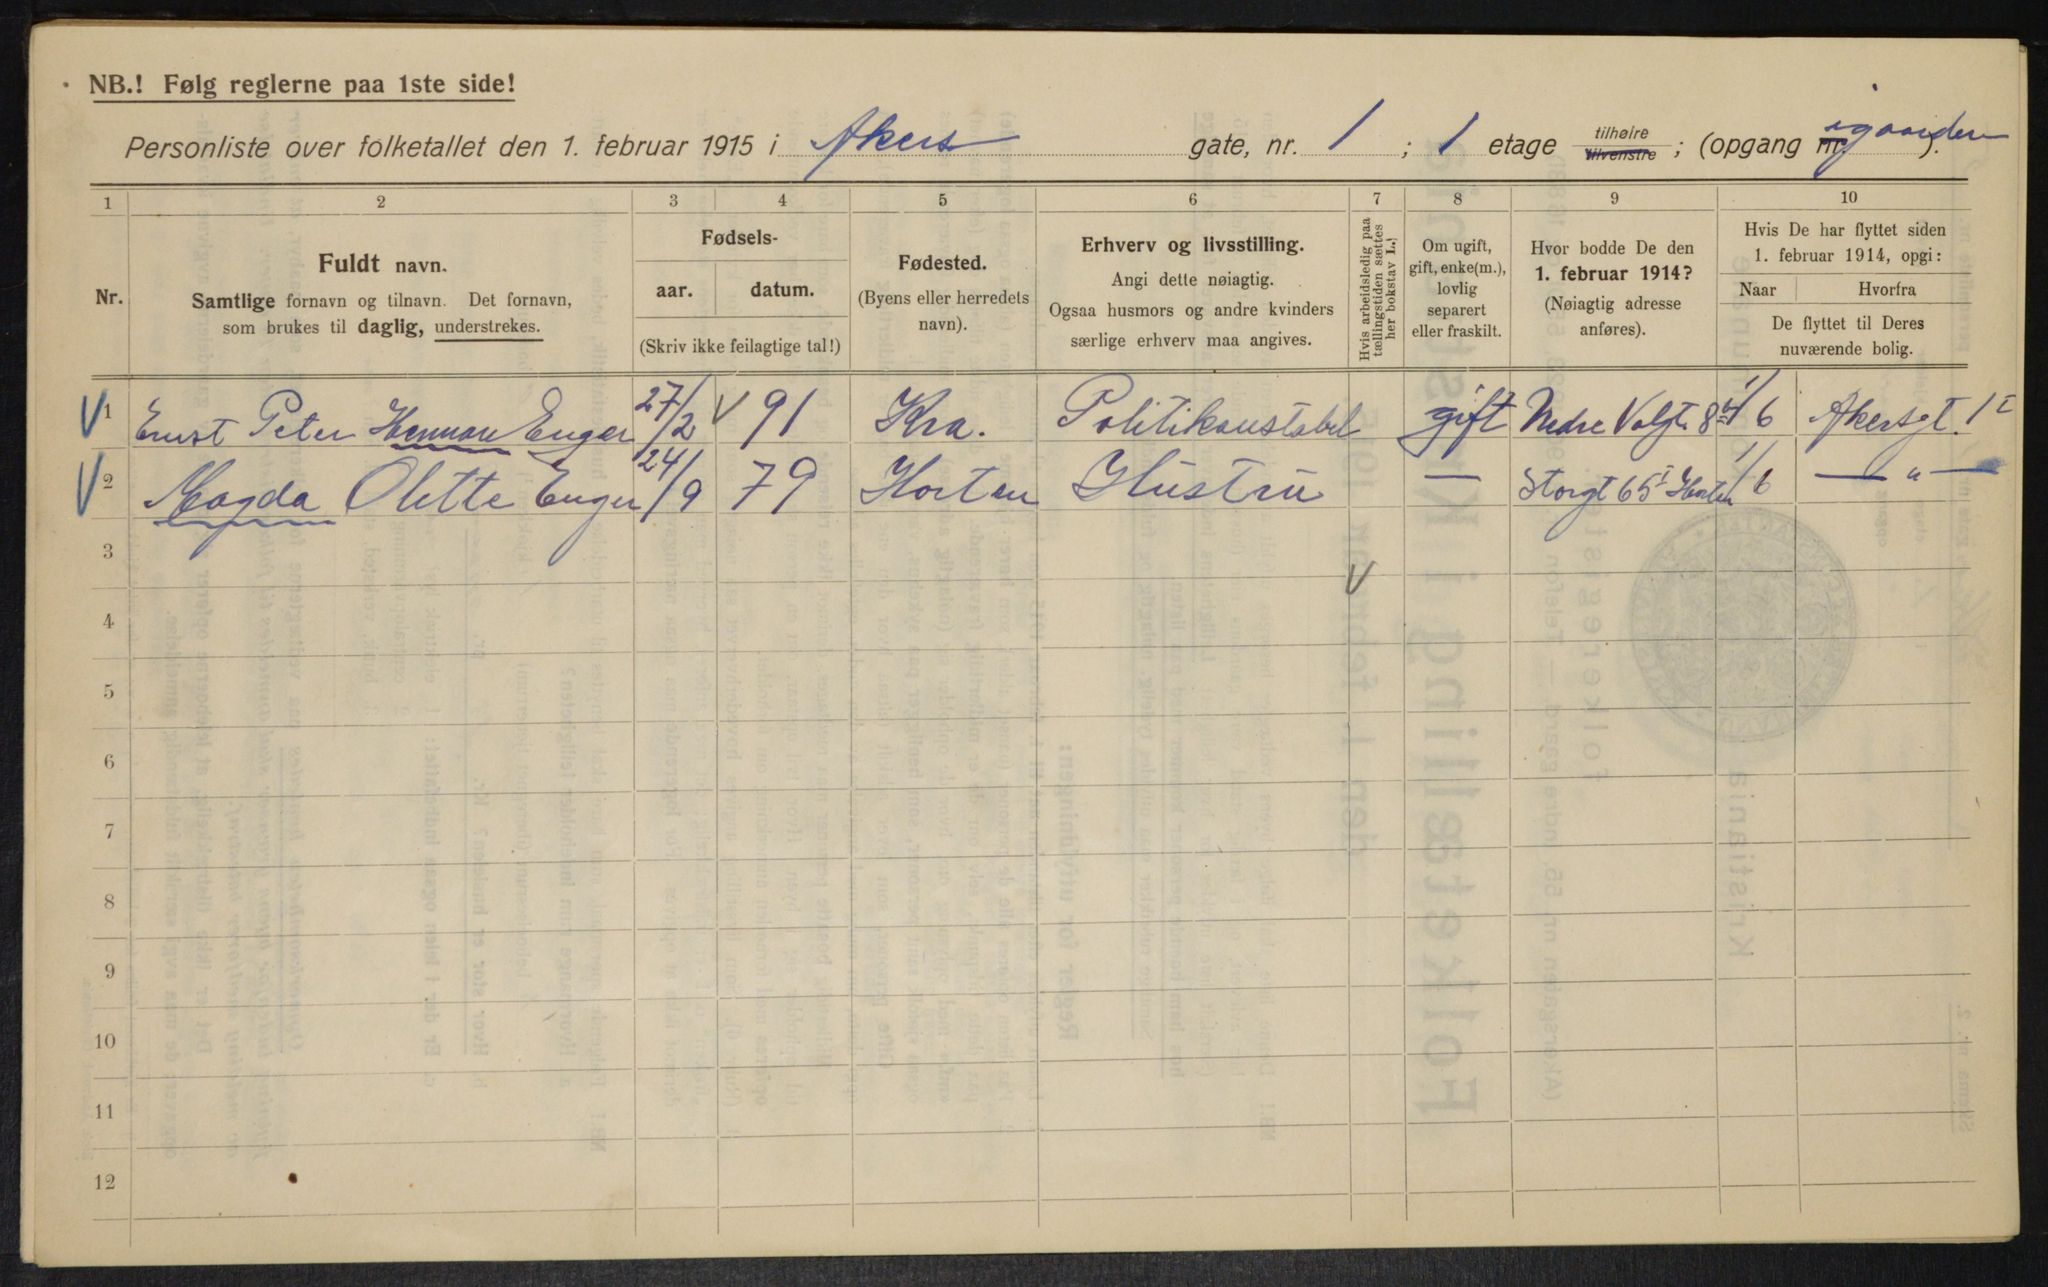 NB.! Følg reglerne paa 1ste side!
Personliste over folketallet den 1. februar 1915 i Akers gate, nr. 1 ; 1 etage tilhøire tilvenstre ; (opgang nr. igaarden ).
1 2 3 4 5 6 7 8 9 10
Nr.
Fuldt navn.
Samtlige fornavn og tilnavn. Det fornavn,
som brukes til daglig, understrekes.
Fødsels-
aar. datum.
(Skriv ikke feilagtige tal!)
Fødested.
(Byens eller herredets
navn).
Erhverv og livsstilling.
Angi dette nøiagtig.
Ogsaa husmors og andre kvinders
særlige erhverv maa angives.
Hvis arbeidsledig paa
tællingstiden sættes
her bokstav L.
Om ugift,
gift, enke(m.),
lovlig
separert
eller fraskilt.
Hvor bodde De den
1. februar 1914?
(Nøiagtig adresse
anføres).
Hvis De har flyttet siden
1. februar 1914, opgi:
Naar Hvorfra
De flyttet til Deres
nuværende bolig.
1 Ernst Peter Herman Enger 27/2 91 Kra. Politikonstabel gift Nedre Volgt 8 1/6 Akersgt. 1 I
2 Magda Olette Enger 24/9 79 Horten Hustru — Storgt 65 I Horten 1/6 — " —
3
4
5
6
7
8
9
10
11
12